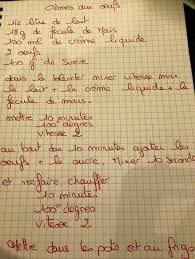 Crèmes aux oeufs
1/2 litre de lait
18g de fécule de Maïs
100 ml de crème liquide
2 oeufs
100 g de sucre
dans le blender mixer vitesse max
le lait + la crème liquide + la
fécule de maïs.
mettre 10 minutes
100° degrés
vitesse 2
au bout des 10 minutes ajouter les
oeufs + le sucre, Mixer 10 secondes
et refaire chauffer
10 minutes
100° degres
Vitesse 2
Mettre dans les pots et au frigo